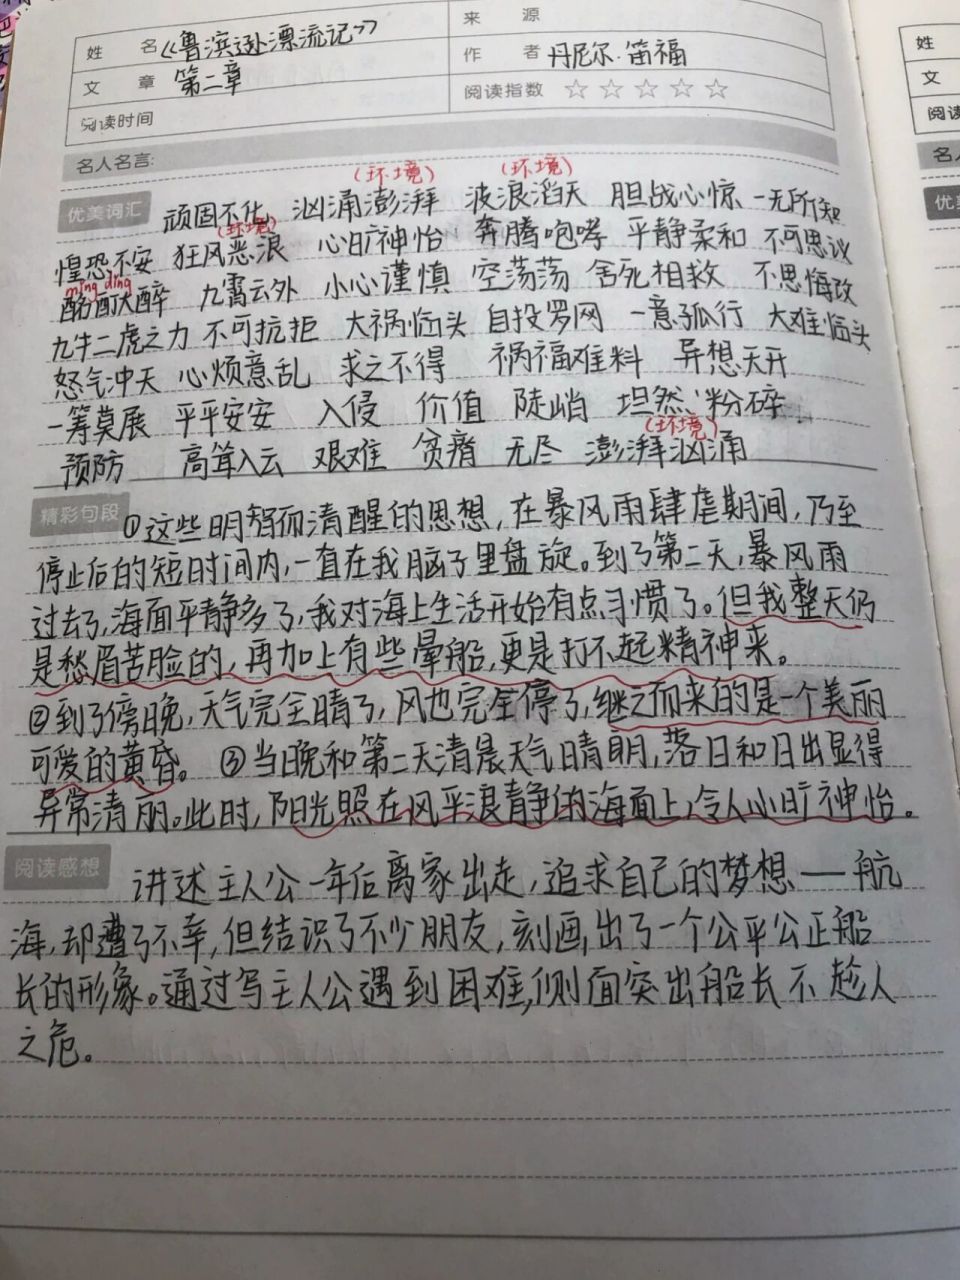 姓 名 《鲁滨逊漂流记》
来 源
文 章 第二章
作 者 丹尼尔·笛福
阅读时间
阅读指数 ☆☆☆☆☆
名人名言:
(环境) (环境)
优美词汇 顽固不化 汹涌澎湃 波浪滔天 胆战心惊 一无所知
(环境)
惶恐不安 狂风恶浪 心旷神怡 奔腾咆哮 平静柔和 不可思议
mǐng dǐng
酩酊大醉 九霄云外 小心谨慎 空荡荡 舍死相救 不思悔改
九牛二虎之力 不可抗拒 大祸临头 自投罗网 一意孤行 大难临头
怒气冲天 心烦意乱 求之不得 祸福难料 异想天开
一筹莫展 平平安安 入侵 价值 陡峭 坦然 粉碎
(环境)
预防 高耸入云 艰难 贫瘠 无尽 澎湃汹涌
精彩句段 ①这些明智而清醒的思想,在暴风雨肆虐期间,乃至
停止后的短时间内,一直在我脑子里盘旋。到了第二天,暴风雨
过去了,海面平静多了,我对海上生活开始有点习惯了。但我整天仍
是愁眉苦脸的,再加上有些晕船,更是打不起精神来。
②到了傍晚,天气完全晴了,风也完全停了,继之而来的是一个美丽
可爱的黄昏。 ③当晚和第二天清晨天气晴朗,落日和日出显得
异常清丽。此时,阳光照在风平浪静的海面上,令人心旷神怡。
阅读感想 讲述主人公一年后离家出走,追求自己的梦想——航
海,却遭了不幸,但结识了不少朋友,刻画出了一个公平公正船
长的形象。通过写主人公遇到困难,侧面突出船长不趁人
之危。
姓
文
阅读
名人
优美